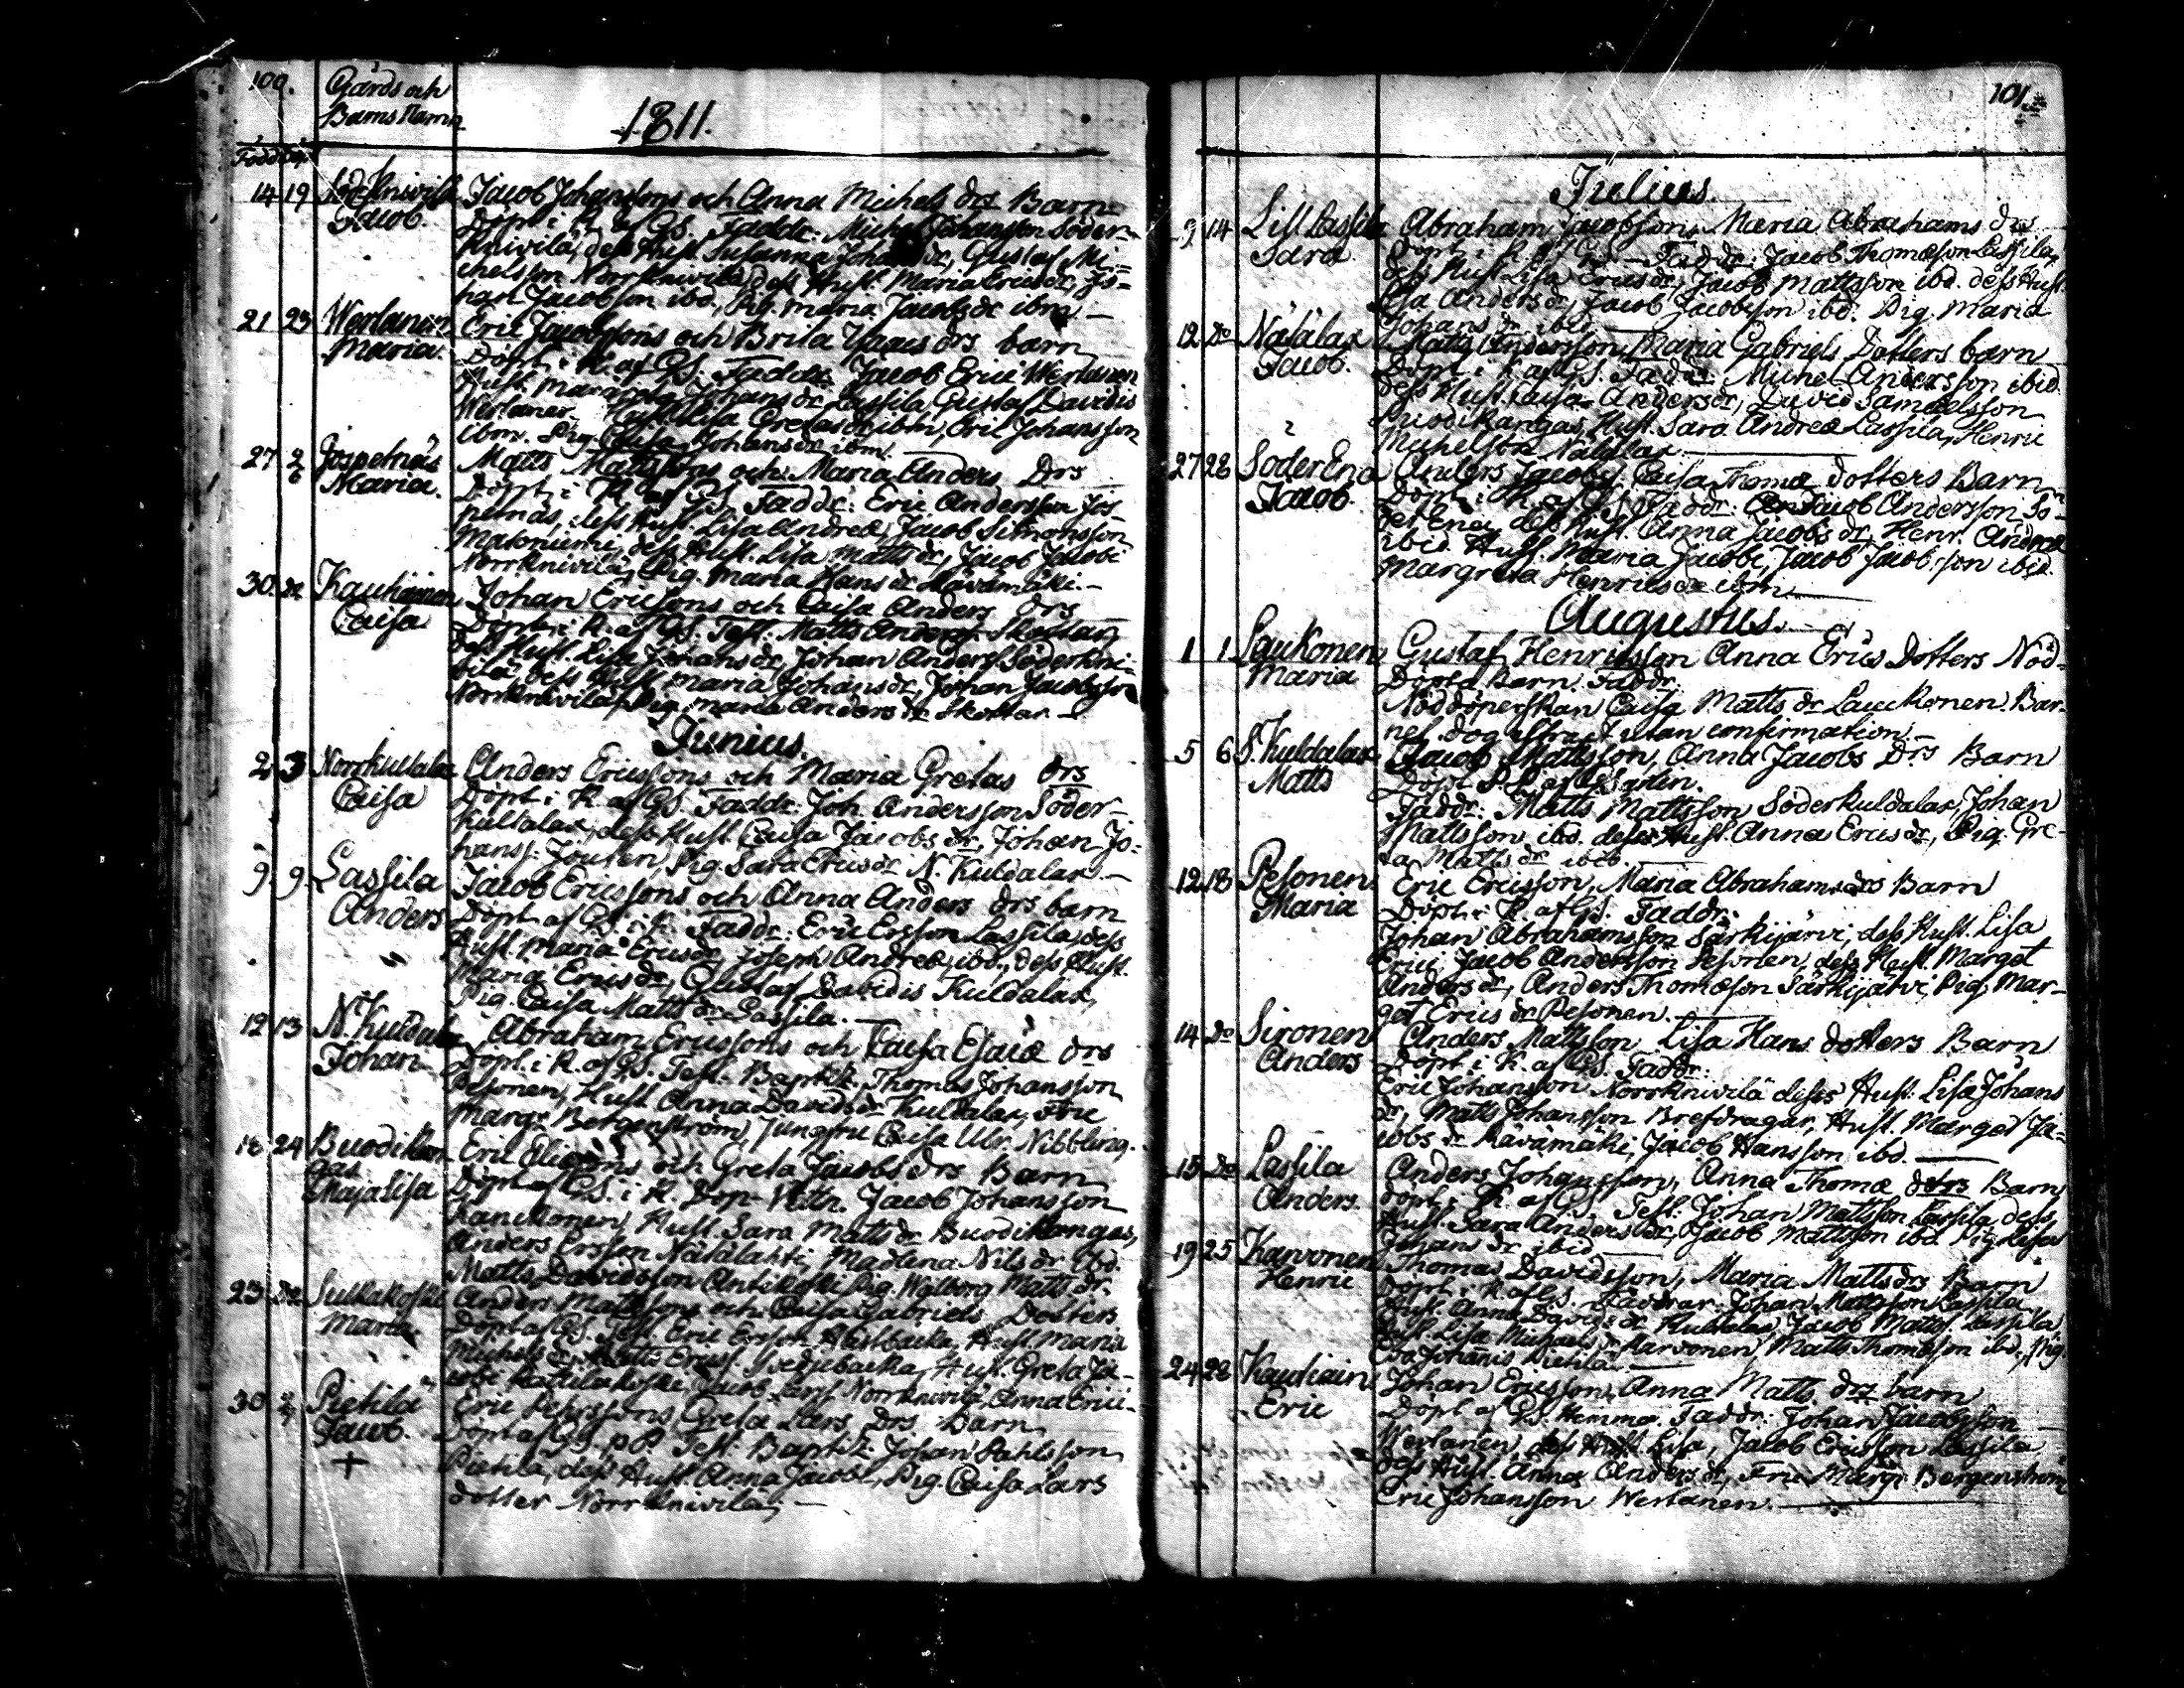 100.
Gårds och
Barns Namn
1811.
Född Döp.
14 19 Södknivilä Jacob Johanssons och Anna Michels drs Barn
Jacob. Döpt i K. af GS. Faddr: Michel Johansson Söder-
Knivilä, dess Hust. Susanna Joha dr, Gustaf Mi-
chelsson Norrknivilä dess Hust. Maria Ericsdr, Jo-
han Jacobsson ibd. Pig. Maria Jacobsdr ibm.
21 23 Werlanen Eric Jacobssons och Brita Isaacs drs barn
Maria. Döpt i K. af GS. Faddr. Jacob Eric Werlanen
Hust. Johans dr Lassila, Gustaf Davidis
Werlanen Hust. Lisa Gretas dr ibm, Eric Johansson
ibm. Pig. Caisa Johans dr ibm.
27 2/6 Jospetnäs Matts Mattssons och Maria Anders Drs
Maria. Döpt i K. af GS. Faddr: Eric Andersson Jos-
petnäs, dess Hust. Lisa Andreæ, Jacob Simonsson
dess Hust. Lisa Matts dr, Jacob Jacobi
Norrknivilä, Pig. Maria Hans dr Kävämäki.
30. Do Kauhainen Johan Ericsons och Caisa Anders drs
Caisa Döpt i K. af GS. Test. Matts Anderss. Skottar,
dess Hust. Lisa Johans dr, Johan Anderss. Söderkni-
vilä, dess Hust. Maria Johansdr, Johan Jacobsson
Norrknivilä, Pig. Maria Anders dr Skottar.
Junius.
2 3 Norrkuldalax Anders Ericssons och Maria Gretas drs
Caisa Döpt i K. af GS. Faddr. Joh. Andersson Söder-
kuldalax, dess Hust. Caisa Jacobs dr, Johan Jo-
hanss. Jouten, Pig. Sara Ericsdr N. Kuldalax.
9. 9. Lassila Jacob Ericssons och Anna Anders drs barn
Anders Döpt af GS. i K. Faddr: Eric Ersson Lassila, dess
Hust. Maria Ericsdr, Joseph Andreæ, ibd., dess Hust.
Maria Ericsdr, Gustaf Davidis Kuldalax,
Pig. Caisa Matts dr Lassila.
12 13 N. Kuldalax Abraham Ericssons och Caisa Esaiæ drs
Johan Döpt i K. af GS. Test. Baptiz. Thomas Johansson
Pesonen, Hust. Anna Davids dr Kuldalax, Fru
Margr. Bergenström, Jungfru Caisa Ulr. Nibbling.
18 24 Buodikan- Eric Eliæsons och Greta Jacobs drs Barn
gas Döpt af GS. i K. Dop- Vittn. Jacob Johansson
Maja Lisa Kauckonen, Hust. Sara Matts dr Buodikangas,
Anders Ersson Nätälahti, Madlena Nils dr ibd.
Matts Davidsson Antikoski Pig. Walborg Matts dr.
23. Do Sullakoski Anders Mattssons och Caisa Gabriels Dotters
Maria. Döpt af GS. Test. Eric Ersson Hästbacka, Hust. Maria
Michels dr, Matts Ericss. Svedjebacka, Hust. Greta Ja-
cobi Jacob Larss. Norrknivilä Anna Erici.
30 2/7 Pietilä Eric Pehrssons Greta Lars Drs Barn
Jacob. Döpt af GS. pP. Test: Baptiz: Johan Pahlsson
+ Pietilä, dess Hust. Anna Jacobi, Pig. Caisa Lars
dotter Norrknivilä,
101
Julius.
9 14 Lill Lassila Abraham Jacobsson, Maria Abrahams drs
Sara Döpt i K. af GS. Faddr: Jacob Thomæson Lassila,
dess Hust. Lisa Ericsdr, Jacob Mattsson ibd. dess Hust.
Lisa Anders dr, Jacob Jacobsson ibd. Pig. Maria
Johans dr ibid.
12 Do Nätälax Matts Andersson, Maria Gabriels Dotters barn
Jacob. Döpt i K. af GS. Faddr: Michel Andersson ibid.
dess Hust. Caisa Andersdr, David Samuelsson
Buodikangas, Hust. Sara Andreæ Lassila, Henric
Michelson Nätälax.
27 28 Söder Ena Anders Jacobs. Caisa Thomæ dotters Barn
Jacob. Döpt i K. af GS. Faddr: Jacob Andersson Sö-
der Ena, dess Hust. Anna Jacobs dr, Henr. Andreæ
ibid. Hust. Maria Jacobi, Jacob Jacobsson ibid.
Margreta Henrics dr ibm.
Augustus.
1 1 Laukonen Gustaf Henricsson Anna Erics Dotters Nöd-
Maria Döpta Barn. Faddr.
Nöddöperskan Caisa Matts dr Lauckonen. Bar-
net dog utan confirmation.
5 6 S. Kuldalax Jacob Mattsson, Anna Jacobs Drs Barn
Matts
Faddr: Matts Mattsson Söderkuldalax, Johan
Mattsson ibd. dess Hust. Anna Ericsdr, Pig. Gre-
ta Matts dr ibid.
12 18 Pesonen Eric Ericsson, Maria Abrahams drs Barn
Maria Döpt i K. af GS. Faddr:
Johan Abrahamsson Särkijärvi, dess Hust. Lisa
Erici Jacob Andersson Pesonen, dess Hust. Marget
Anders dr, Anders Thomæson Särkijärvi, Pig. Mar-
get Erics dr Pesonen.
14 Do Sironen Anders Mattsson Lisa Hans dotters Barn
Anders Döpt i K. af GS. Faddr:
Eric Johansson Norrknivilä dess Hust. Lisa Johans
dr, Matts Johansson Brefdragar, Hust. Marget Ja-
cobs dr Kävämäki, Jacob Hansson ibd.
15 Do Lassila Anders Johansson, Anna Thomæ dotrs Barn
Anders. Döpt i K. af GS. Test. Johan Mattsson Lassila, dess
Hust. Sara Anders dr, Jacob Mattsson ibd. Pig. Lisa
Johans dr ibid.
19 25 Karvonen Thomas Davidsson, Maria Matts drs Barn
Henric Döpt i K. af GS. Faddrar: Johan Mattsson Lassila
Hust. Anna Davids dr Kuldalax, Jacob Matss. Lassila
Hust. Lisa Michaels dr Karvonen, Matts Thomæson ibd., Pig.
Johannis Pietilä.
24 28 Kauhain Johan Ericsson, Anna Matts drs barn
Eric Döpt af GS. Hemma. Faddr: Johan Jacobsson
Werlanen, dess Hust. Lisa, Jacob Ericsson Lassila
dess Hust. Anna Anders dr, Fru Margr. Bergenström,
Eric Johansson Werlanen.